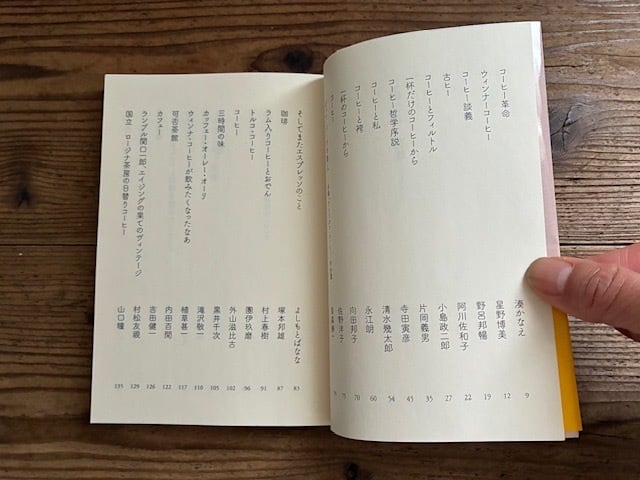 コーヒー革命 湊かなえ 9
ウィンナーコーヒー 星野博美 12
コーヒー談義 野呂邦暢 19
古ヒー 阿川佐和子 22
コーヒーとフィルトル 小島政二郎 27
一杯だけのコーヒーから 片岡義男 35
コーヒー哲学序説 寺田寅彦 45
コーヒーと私 清水幾太郎 54
コーヒーと袴 永江朗 60
一杯のコーヒーから 向田邦子 70
佐野洋子 75
そしてまたエスプレッソのこと よしもとばなな 83
珈琲 塚本邦雄 87
ラム入りコーヒーとおでん 村上春樹 91
トルコ・コーヒー 團伊玖磨 96
コーヒー 外山滋比古 102
三時間の味 黒井千次 105
カッフェー・オーレー・オーリ 滝沢敬一 111
ウィンナ・コーヒーが飲みたくなったなあ 植草甚一 117
可否茶館 内田百閒 122
カフェー 吉田健一 126
ランブル関口一郎、エイジングの果てのヴィンテージ 村松友視 129
国立 ロージナ茶房の日替りコーヒー 山口瞳 135